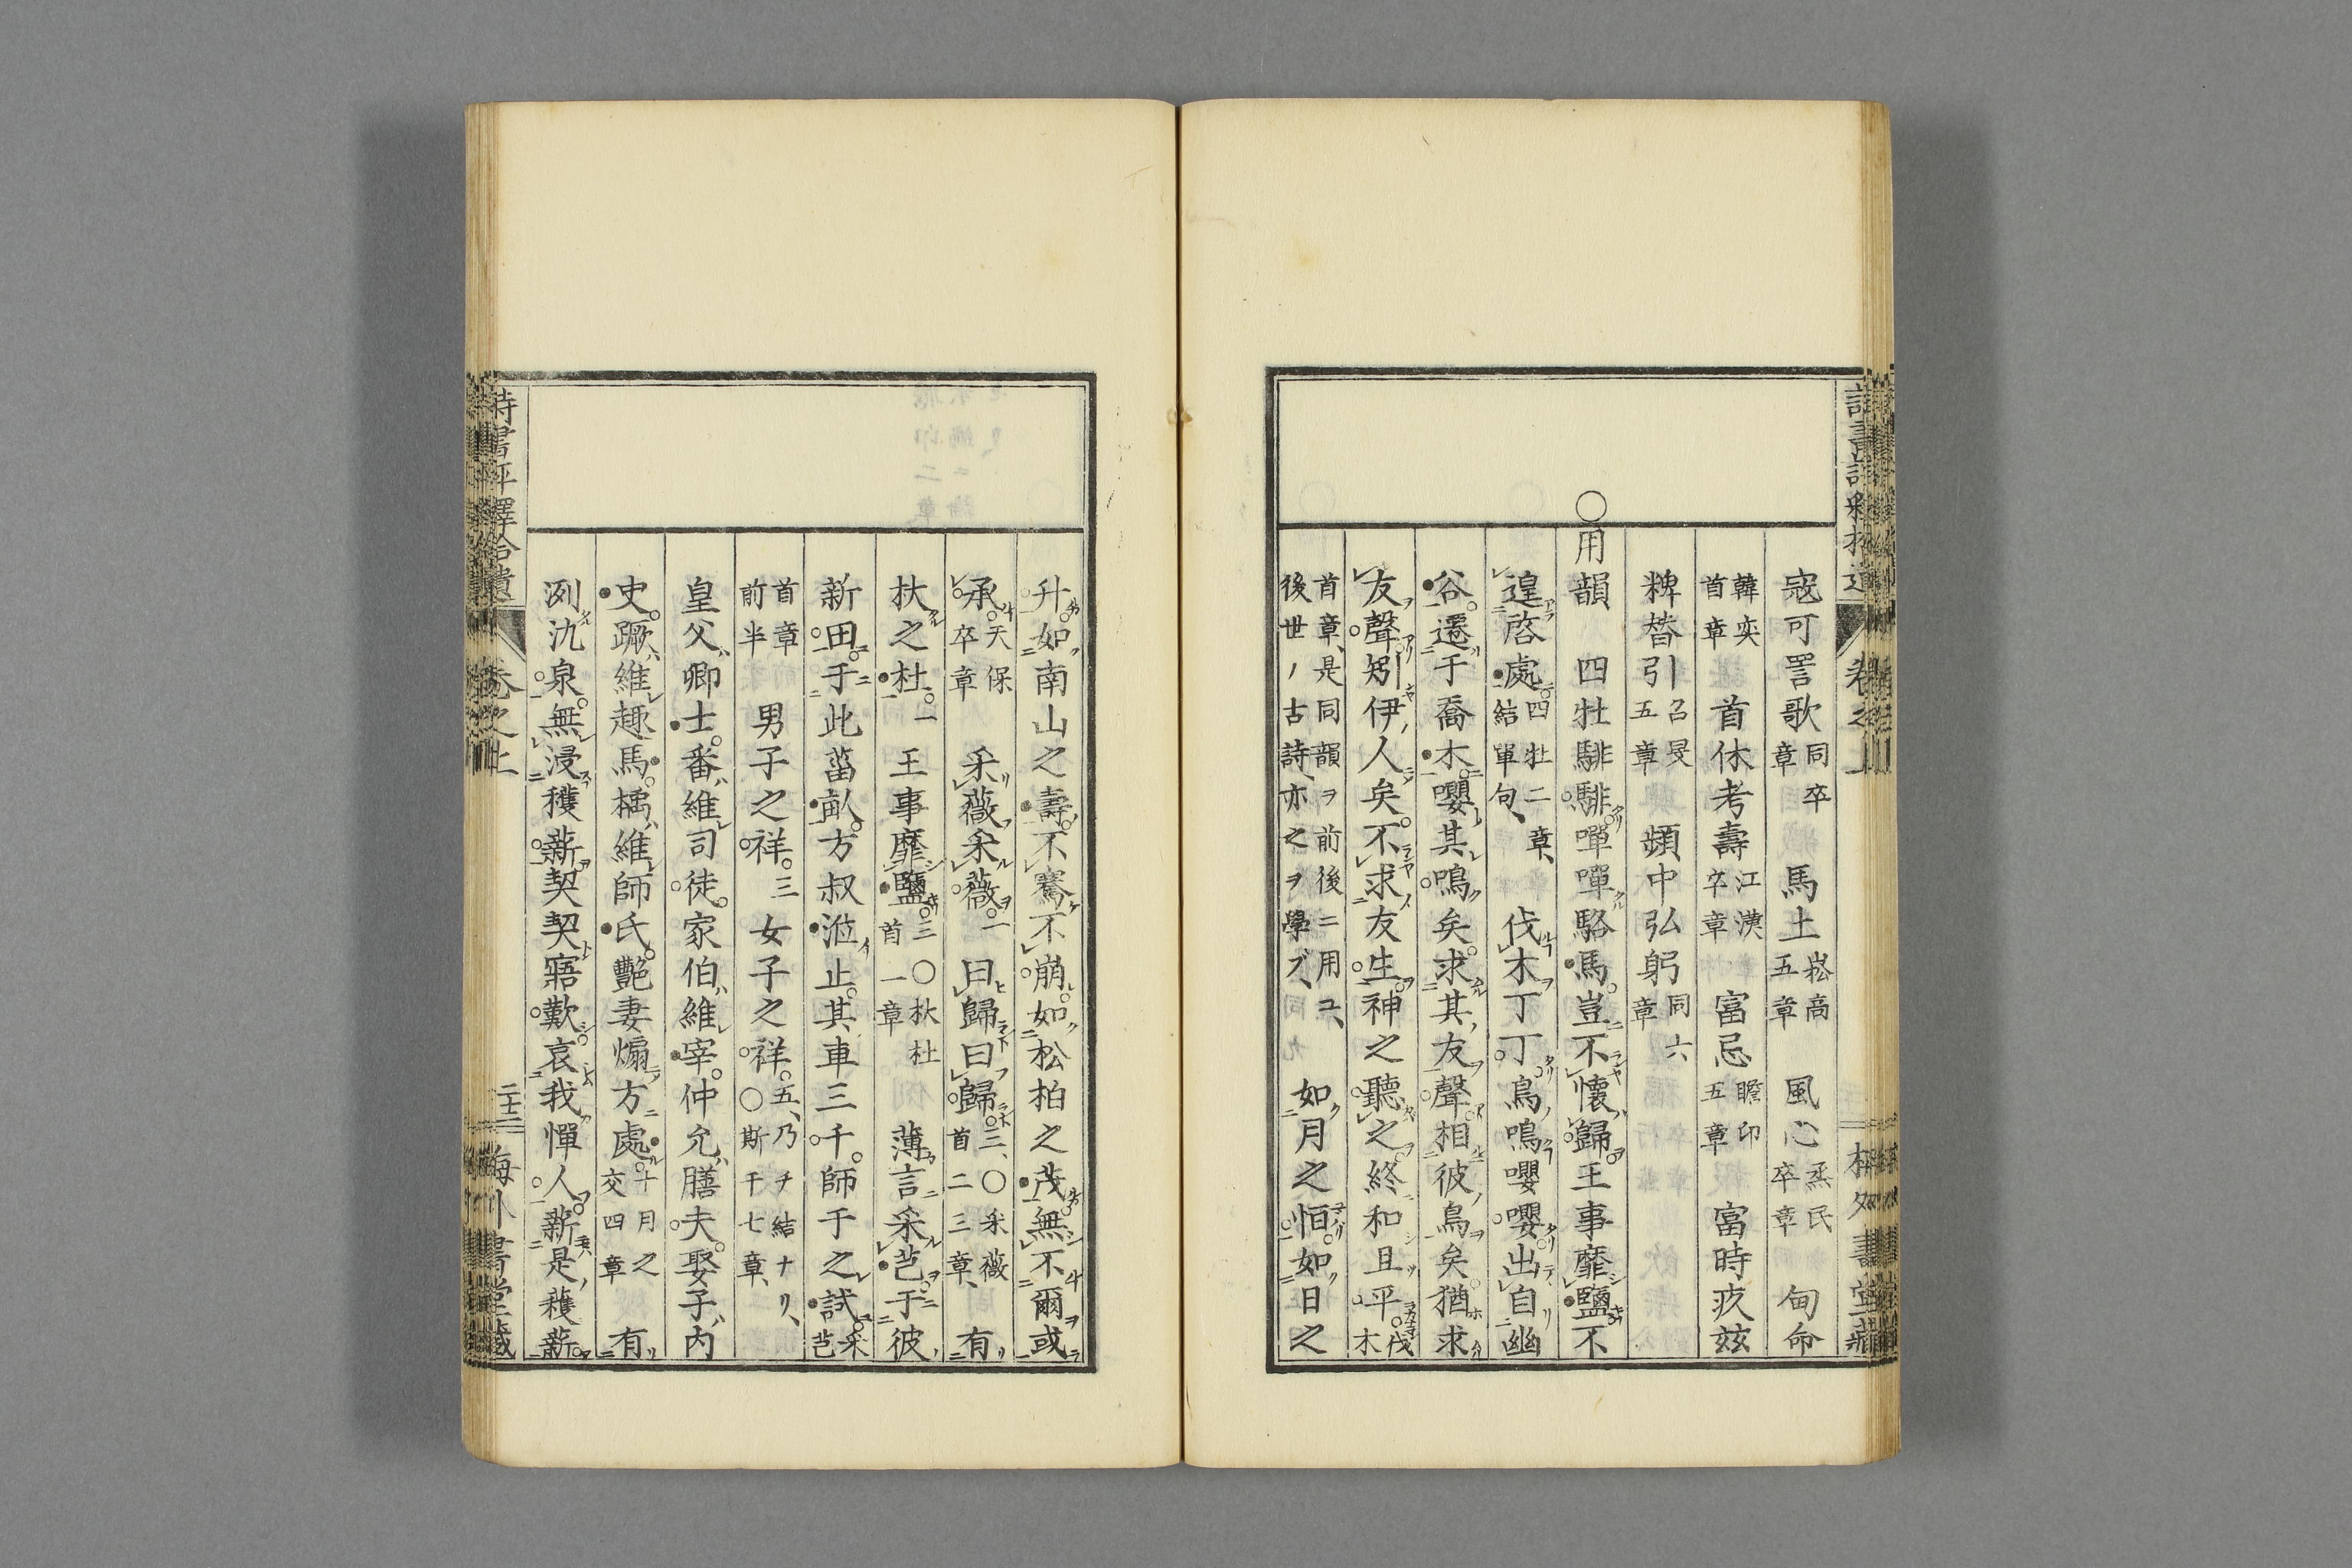 寇可詈歌同卒章　馬土崧高五章　風心烝民卒章　甸命
韓奕首章　首休考壽江漢卒章　富忌瞻卬五章　富時疚兹
粺替引召旻五章　頻中弘躬同六章
○用韻　四牡騑騑嘽嘽駱馬豈不懷歸王事靡盬不
遑啓處四牡二章、結單句、　伐木丁丁鳥鳴嚶嚶出自幽
谷遷于喬木嚶其鳴矣求其友聲相彼鳥矣猶求
友聲矧伊人矣不求友生神之聽之終和且平伐木
首章、是同韻ヲ前後ニ用ユ、後世ノ古詩、亦之ヲ學ブ、　如月之恒如日之
升如南山之壽不騫不崩如松柏之茂無不爾或
承天保卒章　采薇采薇一　曰歸曰歸三、○采薇首二三章、　有
杕之杜一　王事靡盬三○杕杜首一章　薄言采芑于彼
新田于此菑畝方叔涖止其車三千師干之試采芑
首章前半　男子之祥三　女子之祥五、乃チ結ナリ、○斯干七章、
皇父卿士番維司徒家伯維宰仲允膳夫棸子內
史蹶維趣馬楀維師氏艷妻煽方處十月之交四章　有
冽氿泉無浸穫薪契契寤歎哀我憚人薪是穫薪
詩書評釋拾遺　卷之上　二十三